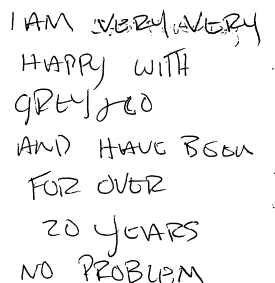 I AM VERY, VERY
HAPPY WITH
AND HAVE BEEN
FOR OVER
20 YEARS
NO PROBLEM